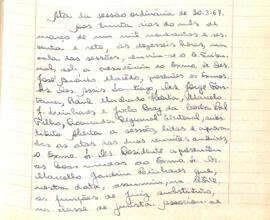 Ata da sessão ordinária de 30-3-67.
Aos trinta dias do mês de
março de um mil novecentos e ses-
senta e sete, às dezesseis horas, na
sala das sessões, reuniu-se o
sob a presidência do Exmo. Sr. Des.
José presentes os Exmos.
Srs. Des. Santiago, Drs. Jorge
Raul Machado Horta, Marcelo
J. Linhares e João Braz da Costa Val
Filho, Procurador Regional Eleitoral, subs-
tituto. Aberta a sessão, lidas e aprova-
das as atas das duas reuniões anteriores,
o Exmo. Sr. Des. Presidente apresentou
as boas vindas ao Exmo. Sr. Dr.
Marcello Jardim Linhares que,
nesta data, assumiu, na
as funções de juiz substituto,
na classe de jurista,